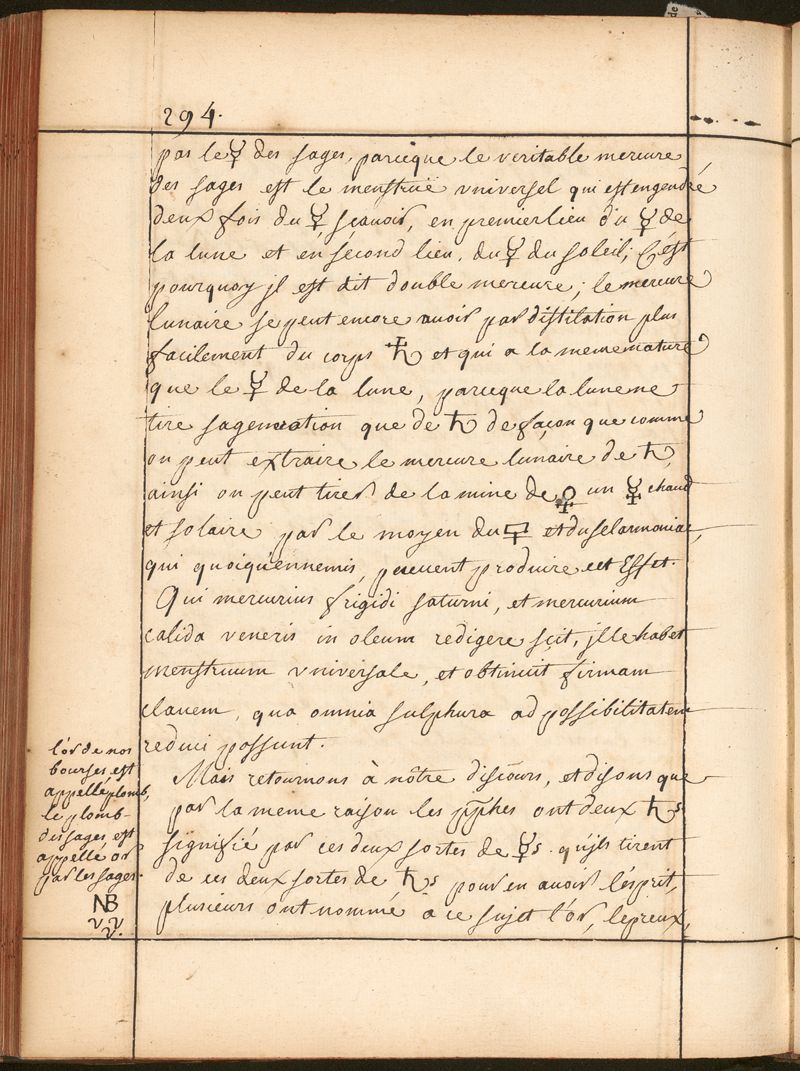 294.
par le ☿ des sages, parceque le veritable mercure
des sages est le menstruë vniversel qui est engendré
deux fois du ☿ sçauoir, en premier lieu du ☿ de
la lune et en sécond lieu, du ☿ du soleil; C'ést
pourquoy jl est dit double mercure; le mercure
lunaire se peut encore auoir par distilation plus
facilement du corps ♄ et qui a la meme nature
que le ☿ de la lune, parceque la lune ne
tire sa generation que de ♄ de façon que comme
on peut extraire le mercure lunaire de ♄,
ainsi on peut tirer de la mine de ♀ un ☿ chaud
et solaire par le moyen du 🜿 et du sel armoniac,
qui quoiqu'ennemis, peuuent produire cet Effet.
Qui mercurius frigidi saturni, et mercurium
calida veneris in oleum redigere sçit, jlle habet
menstruum vniversale, et obtinuit firmam
clauem, qua omnia sulphura ad possibilitatem
reduci possunt.
Mais retournons à nôtre discours, et disons que
par la meme raison les pphes ont deux ♄s
signifié par ces deux sortes de ☿s. qu'jls tirent
de ces deux sortes de ♄s pour en auoir l'esprit,
plusieurs ont nommé à ce sujet l'or, lepreux,
l'or de nos
bourses est
appellé plomb,
le plomb
des sages est
appellé or
par les sages.
NB